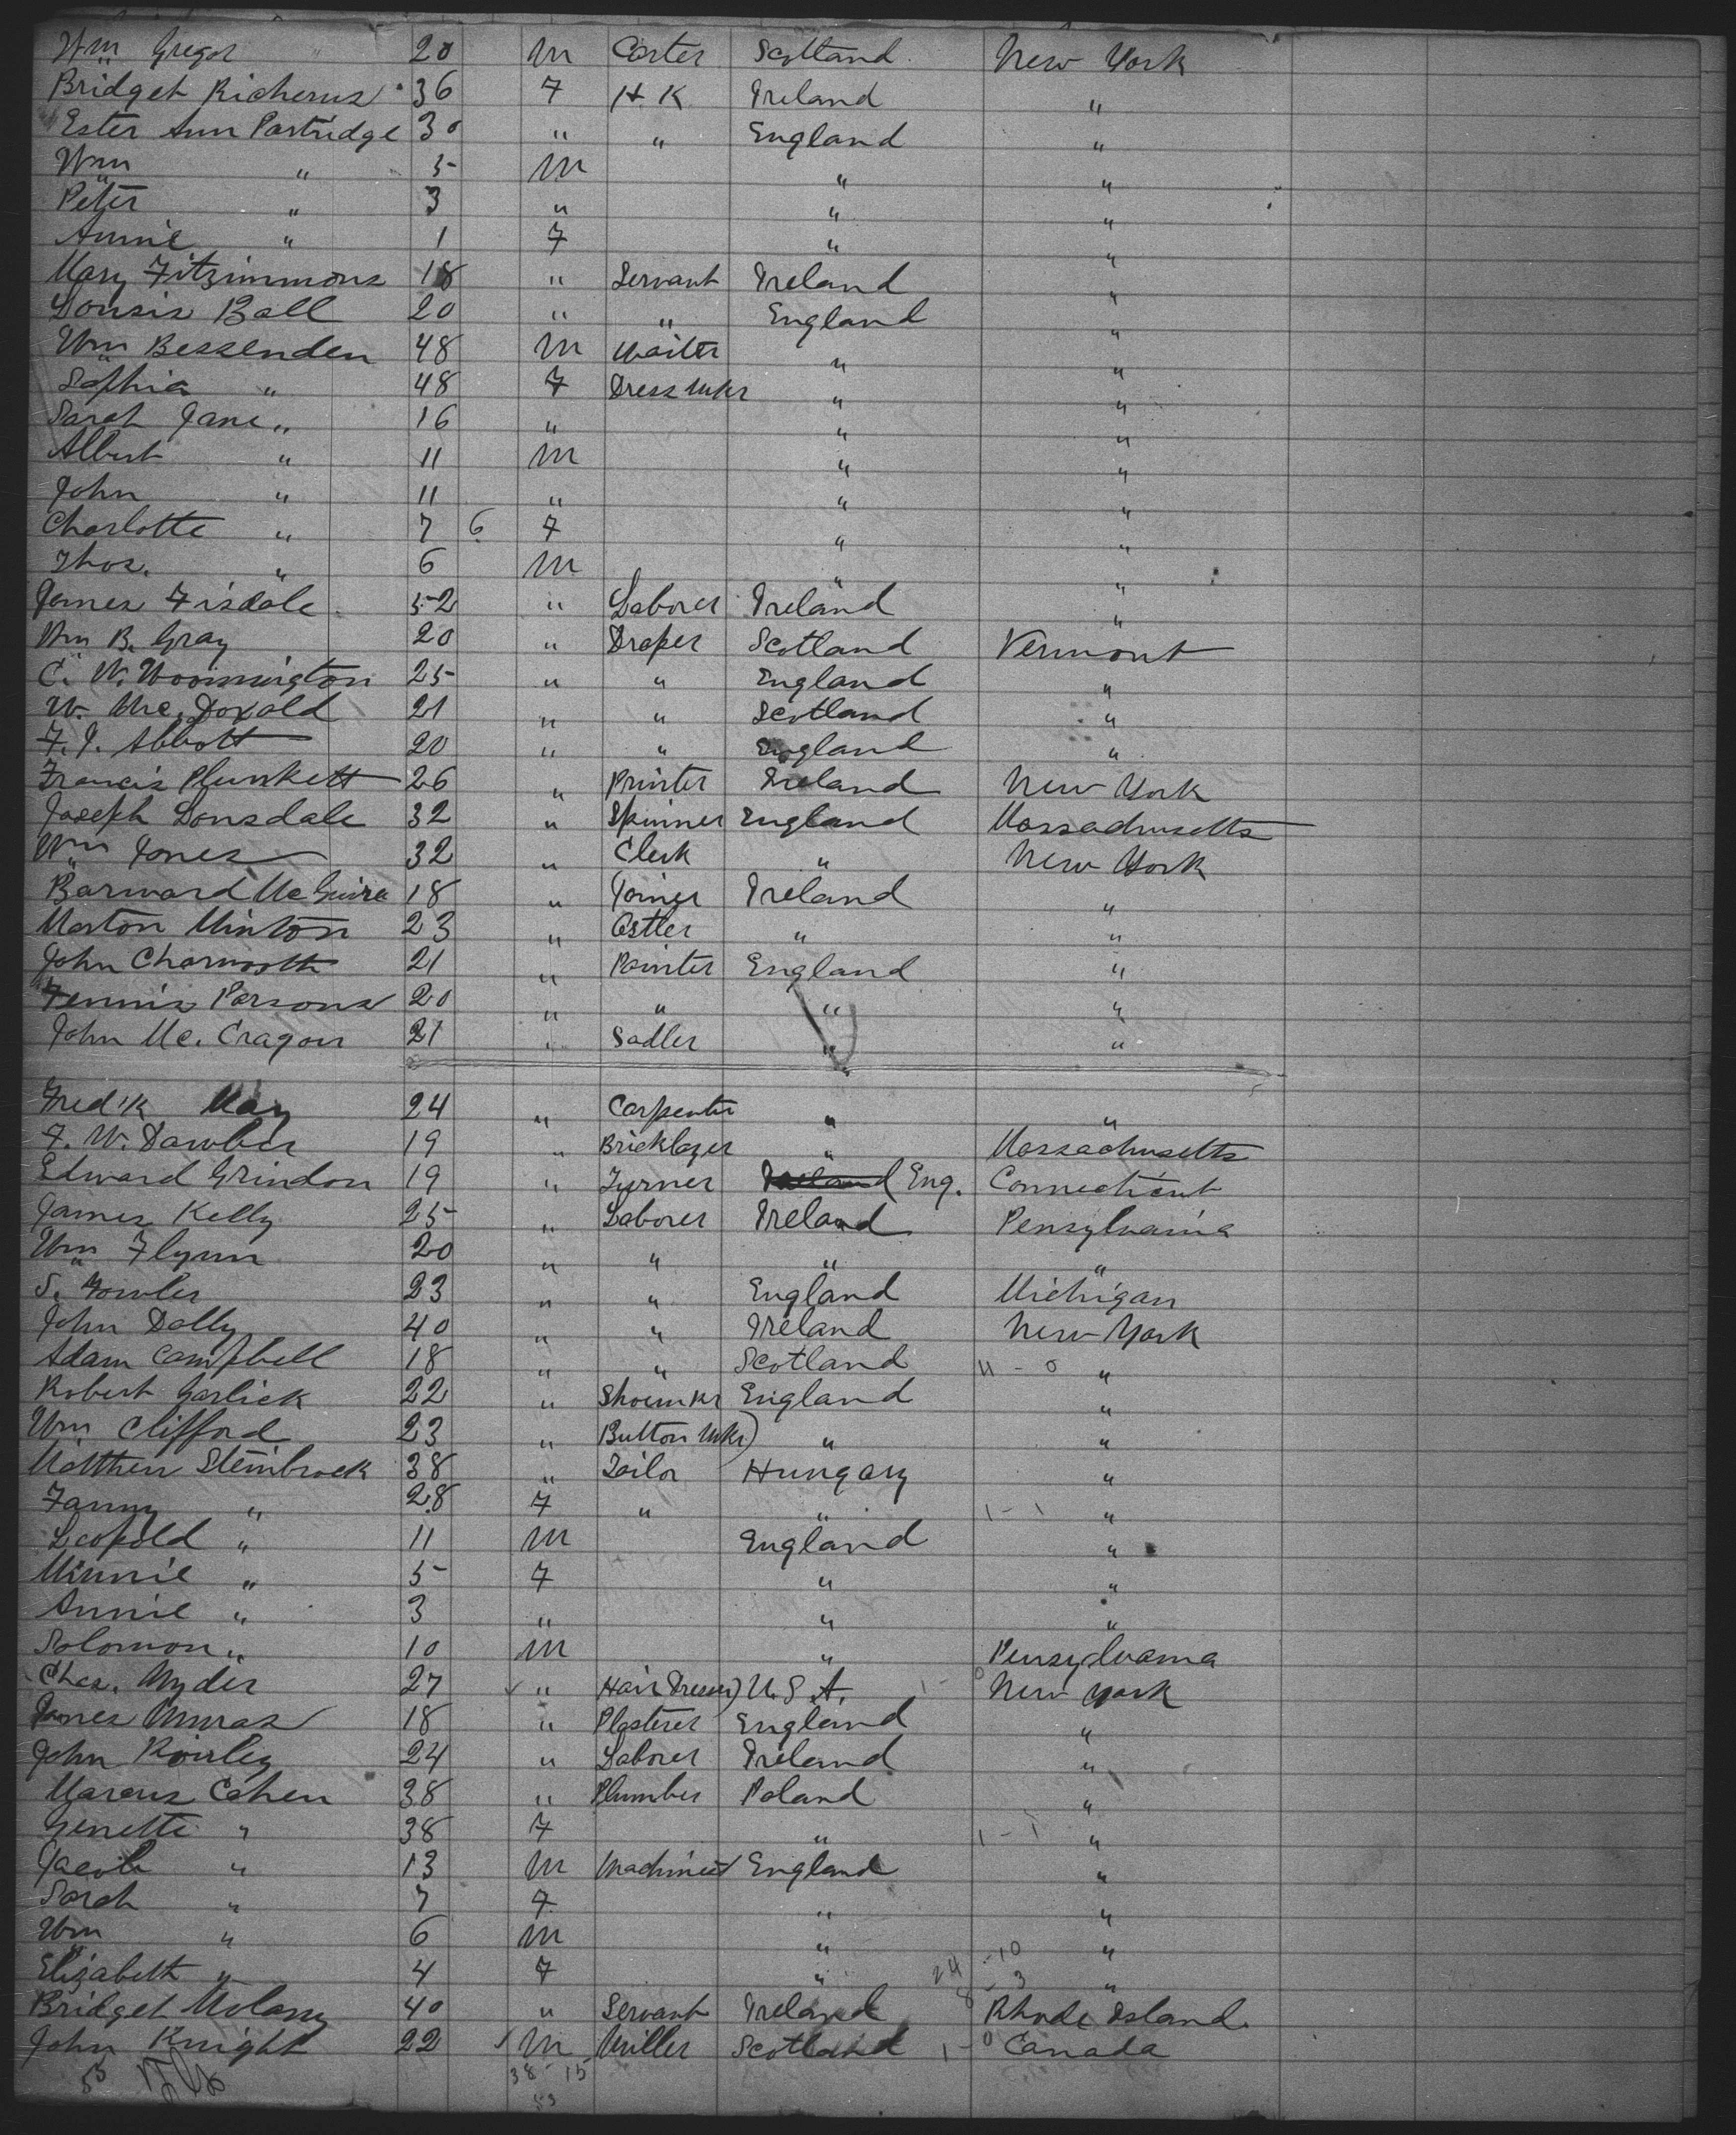 Wm Gregor 20 M Carter Scotland New York
Bridget Richerus 36 F H. K Ireland "
Ester Ann Partridge 30 " " England "
Wm " 5 M " "
Peter " 3 " " "
Annie " 1 F " "
Mary Fitzsimmons 18 " Servant Ireland "
Ball 20 " " England "
Wm Bessenden 48 M Waiter " "
Sophia " 48 F Dress Mkr " "
Sarah Jane " 16 " " "
Albert " 11 M " "
John " 11 " " "
Charlotte " 7 6 F " "
Thos. " 6 M " "
James Fisdale 52 " Laborer Ireland "
Wm B. Gray 20 " Draper Scotland Vermont
C. W. Woonnington 25 " " England "
W. Mc. Doxald 21 " " Scotland "
F. J. Abbott 20 " " England "
Francis Plunkett 26 " Printer Ireland New York
Joseph Lonsdale 32 " Spinner England Massachusetts
Wm Jones 32 " Clerk " New York
Barnard McGuire 18 " Joiner Ireland "
Marton Minton 23 " Ostler " "
John Charnooth 21 " Painter England "
Fennis Parsons 20 " " " "
John Mc. Cragon 21 " Sadler " "
Fred'k May 24 " Carpenter " "
F. W. Dawber 19 " Bricklayer " Massachusetts
Edward Grindon 19 " Turner Ireland Eng. Connecticut
James Kelly 25 " Laborer Ireland Pensylvania
Wm Flynn 20 " " " "
S. Fowler 23 " " England Michigan
John Dally 40 " " Ireland New York
Adam Campbell 18 " " Scotland 11 - 0 "
Robert Garlick 22 " Shoemkr England "
Wm Clifford 23 " Button Mkr) " "
Matthew Steinbrock 38 " Tailor Hungary "
Fanny " 28 F " " 1 - 1 "
Leopold " 11 M England "
Minnie " 5 F " "
Annie " 3 " " "
Solomon " 10 M " Pensylvania
Chas. Nyder 27 " Hair Dresser) U. S. A. 1 - 0 New York
James Muras 18 " Plasterer England "
John Roirley 24 " Laborer Ireland "
Marcus Cohen 38 " Plumber Poland "
Genette " 38 F " 1 - 1 "
Jacob " 13 M Machinist England "
Sarah " 7 F " "
Wm " 6 M " "
Elizabeth " 4 F " 24 - 10 "
Bridget Molany 40 " Servant Ireland 8 - 3 Rhode Island
John Knight 22 M Miller Scotland 1 - 0 Canada
53 38 15
53